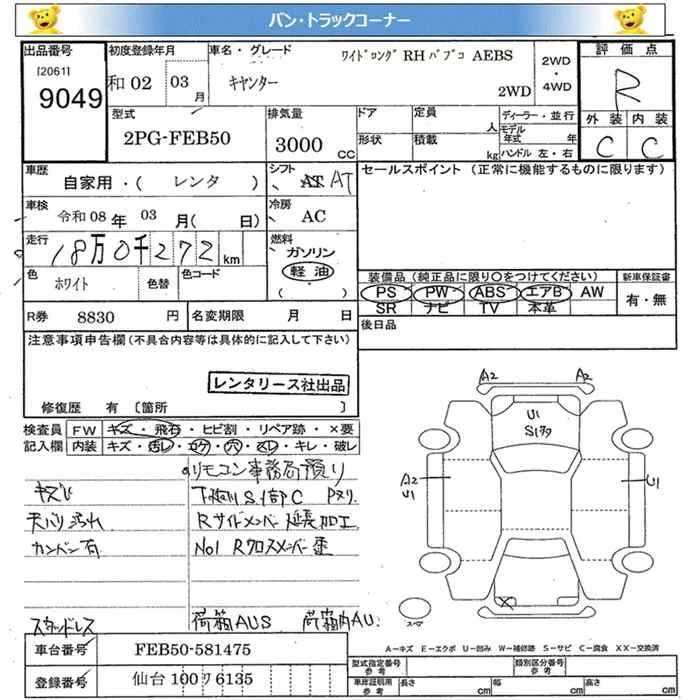 バン・トラックコーナー
出品番号 初度登録年月 車名・グレード ワイドロング RH パブコ AEBS 2WD・4WD 評価点
120611 和02 03月 キャンター 2WD R
9049
型式 排気量 ドア 定員 人 ディーラー・並行 外装 内装
2PG-FEB50 3000 CC 形状 積載 kg モデル年式 年 ハンドル 左・右 C C
車歴 自家用・( レンタ ) シフト AT セールスポイント (正常に機能するものに限ります)
車検 令和08年 03月( 日) 冷房 AC
走行 18万0千272km 燃料 ガソリン 軽油 ( )
色 ホワイト 色替 色コード
装備品 (純正品に限り○をつけてください) 新車保証書
PS PW ABS エアB AW 有・無
SR ナビ TV 本革
R券 8830 円 名変期限 月 日 後日品
注意事項申告欄(不具合内容等は具体的に記入して下さい)
レンタリース社出品
修復歴 有 [箇所 ]
検査員記入欄 FW キズ・飛石・ヒビ割・リペア跡・×要
内装 キズ・汚レ・コゲ・穴・スレ・キレ・破レ
リモコン事務局預り
キズレ 下廻り S1部C Pヌリ
天バリ汚れ Rサイドメンバー延長加工
カンバン有 No1 Rクロスメンバー歪
スタッドレス 荷箱AUS 荷箱内AU.
A2 A2
U1
S1多
A2
U1
U1
X
スマ
A-キズ E-エクボ U-凹み W-補修跡 S-サビ C-腐食 XX-交換済
車台番号 FEB50-581475
登録番号 仙台 100 ワ 6135
型式指定番号 参考 類別区分番号 参考
車庫証明用 参考 長さ cm 幅 cm 高さ cm